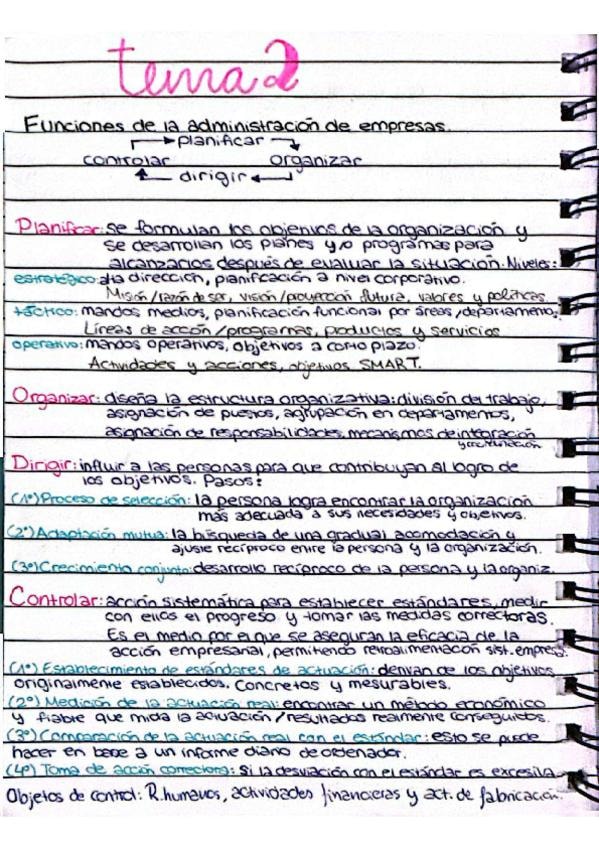 tema 2
Funciones de la administración de empresas.
planificar
controlar organizar
dirigir
Planificar: se formulan los objetivos de la organización y
se desarrollan los planes y/o programas para
alcanzarlos después de evaluar la situación. Niveles:
estratégico: alta dirección, planificación a nivel corporativo.
Misión/razón de ser, visión/proyección futura, valores y políticas.
táctico: mandos medios, planificación funcional por áreas/departamento.
Líneas de acción/programas, productos y servicios
operativo: mandos operativos, objetivos a corto plazo.
Actividades y acciones, objetivos SMART.
Organizar: diseña la estructura organizativa: división de trabajo,
asignación de puestos, agrupación en departamentos,
asignación de responsabilidades, mecanismos de integración
y coordinación
Dirigir: influir a las personas para que contribuyan al logro de
los objetivos. Pasos:
(1º) Proceso de selección: la persona logra encontrar la organización
más adecuada a sus necesidades y objetivos.
(2º) Adaptación mutua: la búsqueda de una gradual acomodación y
ajuste recíproco entre la persona y la organización.
(3º) Crecimiento conjunto: desarrollo recíproco de la persona y la organiz.
Controlar: acción sistemática para establecer estándares, medir
con ellos el progreso y tomar las medidas correctoras.
Es el medio por el que se aseguran la eficacia de la
acción empresarial, permitiendo retroalimentación sist. empresa.
(1º) Establecimiento de estándares de actuación: derivan de los objetivos
originalmente establecidos. Concretos y mesurables.
(2º) Medición de la actuación real: encontrar un método económico
y fiable que mida la actuación/resultados realmente conseguidos.
(3º) Comparación de la actuación real con el estándar: esto se puede
hacer en base a un informe diario de ordenador.
(4º) Toma de acción correctora: si la desviación con el estándar es excesiva.
Objetos de control: R.humanos, actividades financieras y act. de fabricación.